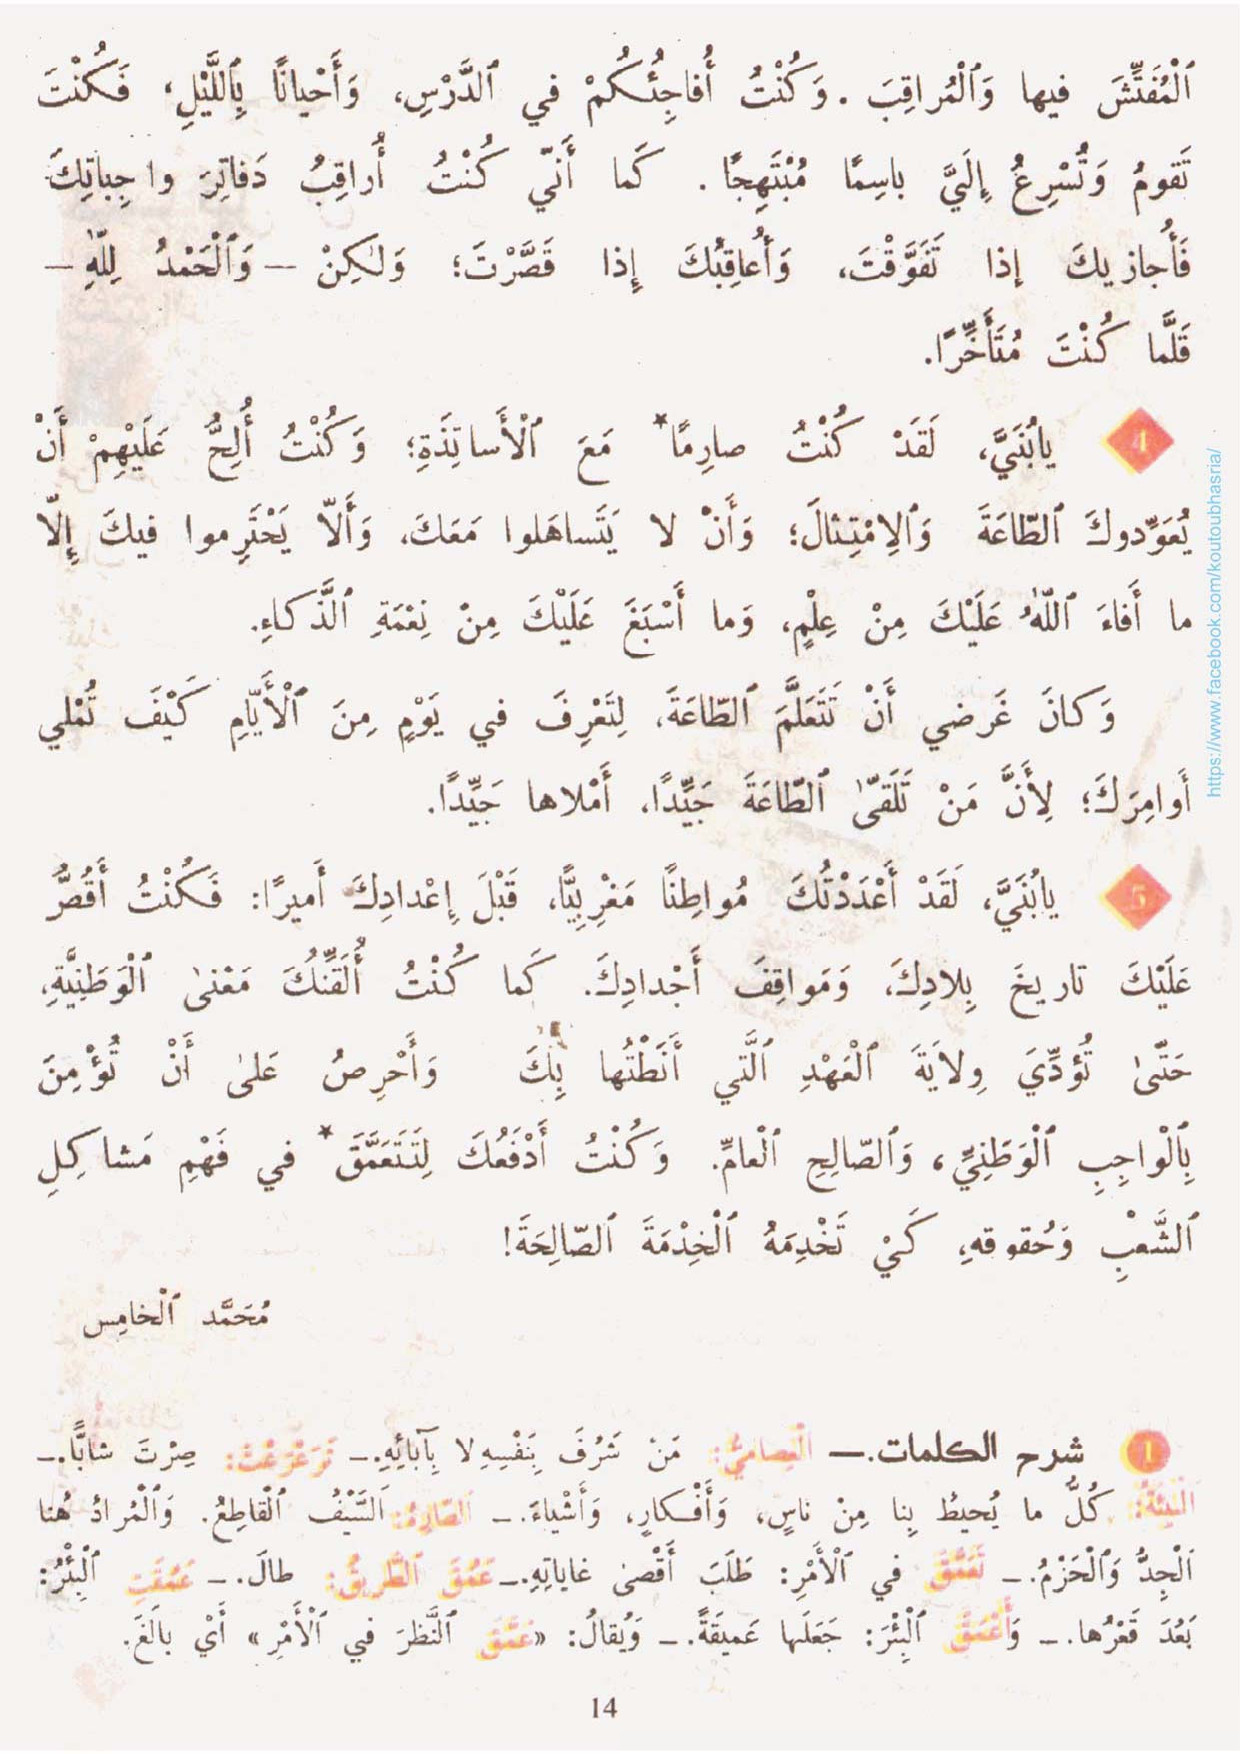 ٱلْمُفَتِّشَ فيها وَٱلْمُراقِبَ . وَكُنْتُ أُفاجِئُكُمْ في ٱلدَّرْسِ، وَأَحْيانًا بِٱللَّيْلِ؛ فَكُنْتَ
تَقومُ وَتُسْرِعُ إِلَيَّ باسِمًا مُبْتَهِجًا . كَما أَنّي كُنْتُ أُراقِبُ دَفاتِرَ واجِباتِكَ
فَأُجازيكَ إذا تَفَوَّقْتَ، وَأُعاقِبُكَ إِذا قَصَّرْتَ؛ وَلٰكِنْ – وَٱلْحَمْدُ لِلّٰهِ –
قَلَّما كُنْتَ مُتَأَخِّرًا.
4 يابُنَيَّ، لَقَدْ كُنْتُ صارِمًا* مَعَ ٱلْأَساتِذَةِ؛ وَكُنْتُ أُلِحُّ عَلَيْهِمْ أَنْ
يُعَوِّدوكَ ٱلطّاعَةَ وَٱلِامْتِثالَ؛ وَأَنْ لا يَتَساهَلوا مَعَكَ، وَأَلّا يَحْتَرِموا فيكَ إِلّا
ما أَفاءَ ٱللّٰهُ عَلَيْكَ مِنْ عِلْمٍ، وَما أَسْبَغَ عَلَيْكَ مِنْ نِعْمَةِ ٱلذَّكاءِ.
وَكانَ غَرَضي أَنْ تَتَعَلَّمَ ٱلطّاعَةَ، لِتَعْرِفَ في يَوْمٍ مِنَ ٱلْأَيّامِ كَيْفَ تُمْلي
أَوامِرَكَ؛ لِأَنَّ مَنْ تَلَقّىٰ ٱلطّاعَةَ جَيِّدًا، أَمْلاها جَيِّدًا.
5 يابُنَيَّ، لَقَدْ أَعْدَدْتُكَ مُواطِنًا مَغْرِبِيًّا، قَبْلَ إِعْدادِكَ أَميرًا: فَكُنْتُ أَقُصُّ
عَلَيْكَ تاريخَ بِلادِكَ، وَمَواقِفَ أَجْدادِكَ. كَما كُنْتُ أُلَقِّنُكَ مَعْنىٰ ٱلْوَطَنِيَّةِ،
حَتّىٰ تُؤدِّيَ وِلاَيَةَ ٱلْعَهْدِ ٱلَّتي أَنَطْتُها بِكَ وَأَحْرِصُ عَلىٰ أَنْ تُؤْمِنَ
بِٱلْواجِبِ ٱلْوَطَنِيِّ، وَٱلصّالِحِ ٱلْعامِّ. وَكُنْتُ أَدْفَعُكَ لِتَتَعَمَّقَ* في فَهْمِ مَشاكِلِ
ٱلشَّعْبِ وَحُقوقهِ، كَيْ تَخْدِمَهُ ٱلْخِدْمَةَ ٱلصّالِحَةَ!
مُحَمَّد ٱلْخامِس
1 شرح الكلمات.— ٱلْعِصامِيُّ: مَنْ شَرُفَ بِنَفْسِهِ لا بِآبائِهِ.– تَرَعْرَعْتَ: صِرْتَ شابًّا.–
ٱلْبيئَةُ: كُلُّ ما يُحيطُ بِنا مِنْ ناسٍ، وَأَفْكارٍ، وَأَشْياءَ.– ٱلصّارِمُ: اَلسَّيْفُ ٱلْقاطِعُ. وَٱلْمُرادُ هُنا
اَلْجِدُّ وَٱلْحَزْمُ.– تَعَمَّقَ في ٱلْأَمْرِ: طَلَبَ أَقْصىٰ غاياتِهِ.– عَمُقَ ٱلطَّريقُ: طالَ.– عَمُقَتِ ٱلْبِئْرُ:
بَعُدَ قَعْرُها.– وَأَعْمَقَ ٱلْبِئْرَ: جَعَلَها عَميقَةً.– وَيُقالُ: «عَمَّقَ ٱلنَّظَرَ في ٱلْأَمْرِ» أَيْ بالَغَ.
14
https://www.facebook.com/koutoubhasria/